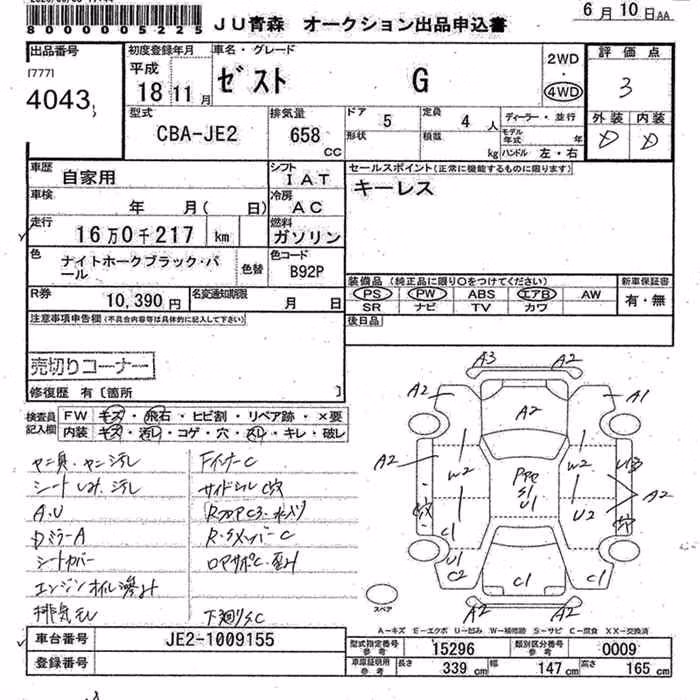 800000005225
JU青森 オークション出品申込書
6月10日AA
出品番号
[777]
4043
初度登録年月
平成
18 11月
車名・グレード
ゼスト G
2WD
・
4WD
評価点
3
外装 内装
D D
型式
CBA-JE2
排気量
658
CC
ドア 5
形状
定員 4 人
積載 kg
ディーラー・並行
モデル年式 年
ハンドル 左・右
車歴 自家用
シフト IAT
車検 年 月( 日)
冷房 AC
走行 16万0千217 km
燃料 ガソリン
色 ナイトホークブラック・パール
色替
色コード B92P
R券 10,390 円
名変通知期限 月 日
セールスポイント(正常に機能するものに限ります)
キーレス
装備品(純正品に限り○をつけてください)
PS PW ABS エアB AW
SR ナビ TV カワ
新車保証書
有・無
後日品
注意事項申告欄(不具合内容等は具体的に記入して下さい)
売切りコーナー
修復歴 有〔箇所 〕
検査員記入欄
FW キズ・飛石・ヒビ割・リペア跡・×要
内装 キズ・汚れ・コゲ・穴・スレ・キレ・破レ
シート しみ、汚れ
A.U
Dミラー A
シートカバー
エンジンオイル滲み
排気モレ
FインナーC
サイドシル C穴
下廻り S.C
A3 A2
A2 A1
A2
A2 W2 W2 A2
S1
U1
U2
C1
U1
C2 C1 C1
A2 A2
スペア
A-キズ E-エクボ U-凹み W-補修跡 S-サビ C-腐食 XX-交換済
車台番号 JE2-1009155
登録番号
型式指定番号 参考 15296
類別区分番号 参考 0009
車庫証明用 参考 長さ 339 cm 幅 147 cm 高さ 165 cm